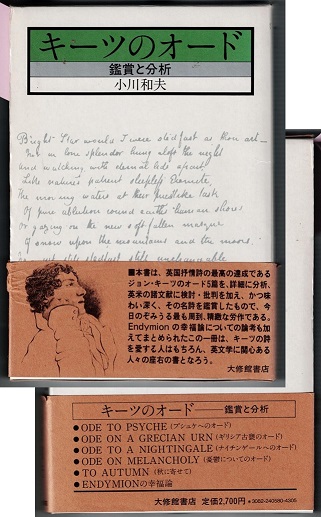 キーツのオード
鑑賞と分析
小川和夫
Bright Star would I were stedfast as thou art—
Not in lone splendor hung aloft the night
and watching with eternal lids apart
Like nature's patient sleepless Eremite,
The moving waters at their priestlike task
Of pure ablution round earth's human shores
Or gazing on the new soft fallen masque
Of snow upon the mountains and the moors.
still stedfast still unchangeable
■本書は、英国抒情詩の最高の達成である
ジョン・キーツのオード5篇を、詳細に分析、
英米の諸文献に検討・批判を加え、かつ味
わい深く、その名詩を鑑賞したもので、今
日のぞみうる最も周到、精緻な労作である。
Endymionの幸福論についての論考も加
えてまとめられたこの一冊は、キーツの詩
を愛する人はもちろん、英文学に関心ある
人々の座右の書となろう。
大修館書店
キーツのオード 鑑賞と分析
●ODE TO PSYCHE(プシュケへのオード)
●ODE ON A GRECIAN URN(ギリシア古甕のオード)
●ODE TO A NIGHTINGALE(ナイチンゲールへのオード)
●ODE ON MELANCHOLY(憂鬱についてのオード)
●TO AUTUMN(秋に寄せて)
●ENDYMIONの幸福論
大修館書店 定価2,700円 ●3082-240580-4305